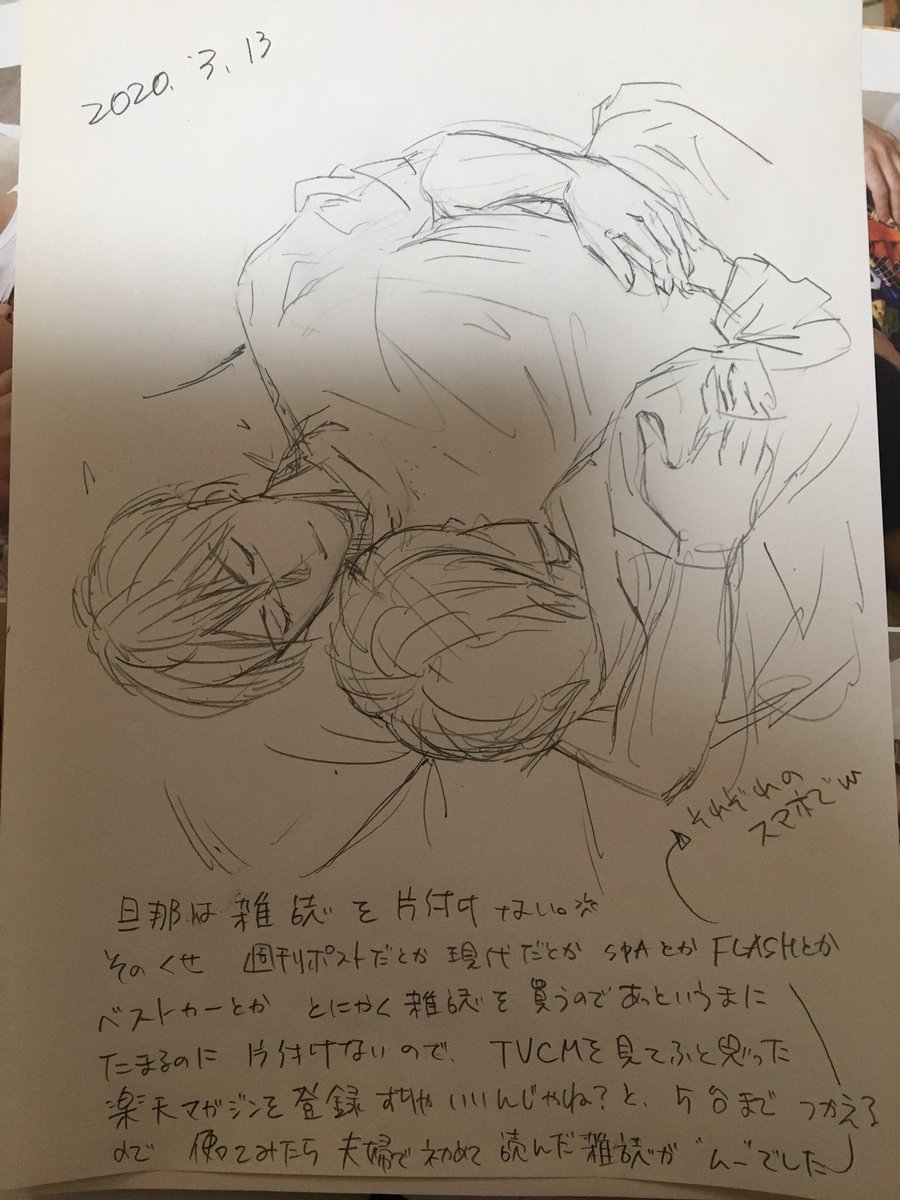 2020.'3.13
それぞれの
スマホでw
旦那は雑誌を片付けない。
そのくせ 週刊ポストだとか 現代だとか SPAとか FLASHとか
ベストカーとか とにかく雑誌を買うのであっというまに
たまるのに片付けないので、TVCMを見てふと思った
楽天マガジンを登録すりゃいいんじゃね?と、5台まで つかえる
ので 使ってみたら 夫婦で初めて読んだ雑誌が"ムー"でした